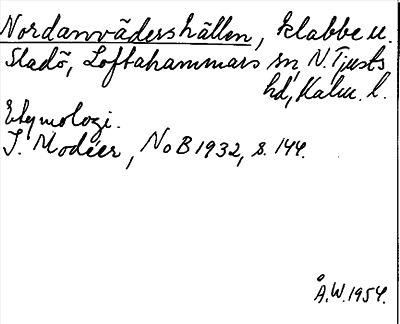 Nordanvädershällen, klabbe u.
Sladö, Loftahammars sn, N. Tjusts
hd, Kalm. l.
Etymologi.
I. Modéer, NoB 1932, s. 144.
Å.W. 1954.